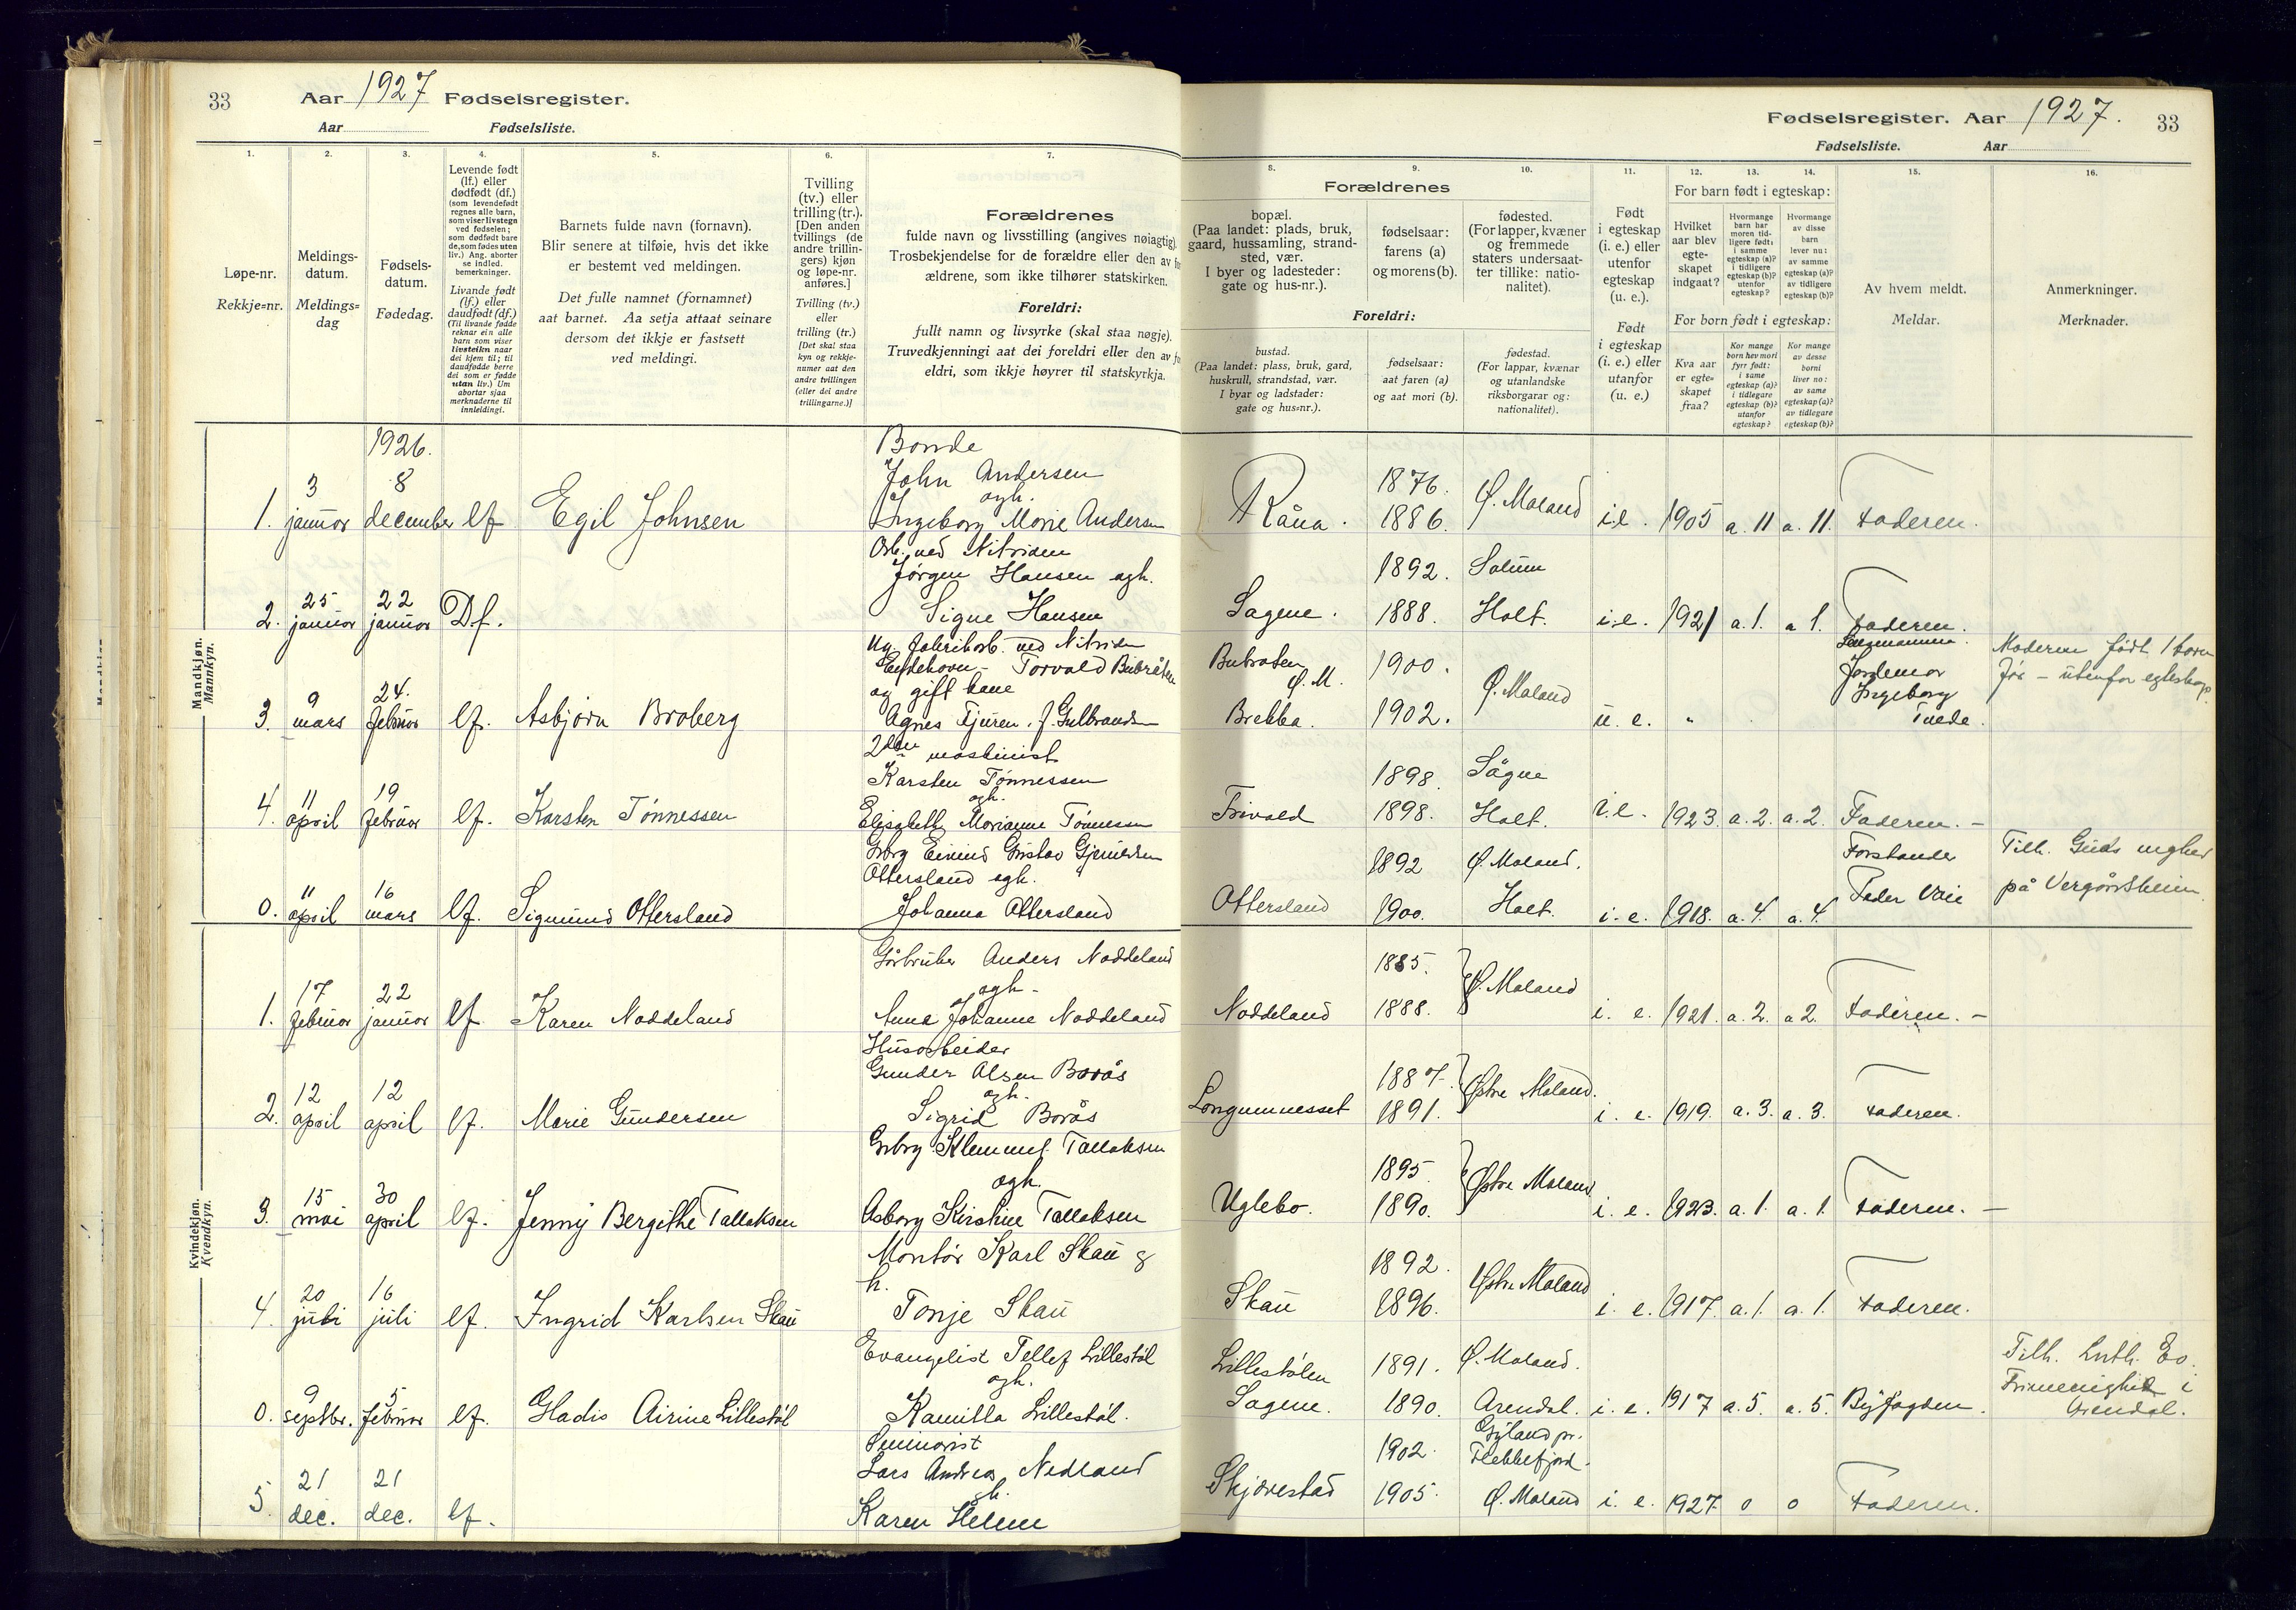 33
Aar 1927 Fødselsregister.
Aar Fødselsliste.
Fødselsregister. Aar 1927. 33
Fødselsliste. Aar
1. 2. 3. 4. 5. 6. 7.
Løpe-nr.
Rekkje=nr.
Meldings-
datum.
Meldings=
dag
Fødsels-
datum.
Fødedag.
Levende født
(lf.) eller
dødfødt (df.)
(som levendefødt
regnes alle barn,
som viser livstegn
ved fødselen;
som dødfødt bare
de, som fødes uten
liv.) Ang. aborter
se indled.
bemerkninger.
Livande født
(lf.) eller
daudfødt (df.)
(Til livande fødde
reknar ein alle
barn som viser
livsteikn naar
dei kjem til; til
daudfødde berre
dei som er fødde
utan liv.) Um
abortar sjaa
merknaderne til
innleidingi.
Barnets fulde navn (fornavn).
Blir senere at tilføie, hvis det ikke
er bestemt ved meldingen.
Det fulle namnet (fornamnet)
aat barnet. Aa setja attaat seinare
dersom det ikkje er fastsett
ved meldingi.
Tvilling
(tv.) eller
trilling (tr.).
[Den anden
tvillings (de
andre trillin-
gers) kjøn
og løpe-nr.
anføres.]
Tvilling (tv.)
eller
trilling (tr.)
[Det skal staa
kyn og rekkje-
numer aat den
andre tvillingen
(eller dei andre
trillingarne.)]
Forældrenes
fulde navn og livsstilling (angives nøiagtig).
Trosbekjendelse for de forældre eller den av
ældrene, som ikke tilhører statskirken.
Foreldri:
fullt namn og livsyrke (skal staa nøgje).
Truvedkjenningi aat dei foreldri eller den av
eldri, som ikkje høyrer til statskyrkja.
8. 9. 10. 11. 12. 13. 14. 15. 16.
Forældrenes
bopæl.
(Paa landet: plads, bruk,
gaard, hussamling, strand-
sted, vær.
I byer og ladesteder:
gate og hus-nr.).
fødselsaar:
farens (a)
og morens (b).
fødested.
(For lapper, kvæner
og fremmede
staters undersaat-
ter tillike: natio-
nalitet).
Foreldri:
bustad.
(Paa landet: plass, bruk, gard,
huskrull, strandstad, vær.
I byar og ladstader:
gate og hus=nr.).
fødselsaar:
aat faren (a)
og aat mori (b).
fødestad.
(For lappar, kvænar
og utanlandske
riksborgarar og:
nationalitet).
Født
i egteskap
(i. e.) eller
utenfor
egteskap
(u. e.).
Født
i egteskap
(i. e.) eller
utanfor
(u. e.)
For barn født i egteskap:
Hvilket
aar blev
egte-
skapet
indgaat?
Hvormange
barn har
moren tid-
ligere født:
i samme
egteskap (a)?
i tidligere
egteskap (b)?
utenfor
egteskap?
Hvormange
av disse
barn
lever nu:
av samme
egteskap (a)?
av tidligere
egteskap (b)?
For born født i egteskap:
Kva aar
er egte=
skapet
fraa?
Kor mange
born hev mori
fyrr født:
i same
egteskap (a)?
i tidlegare
egteskap (b)?
utanfor
egteskap?
Kor mange
av desse
borni
liver no:
av same
egteskap (a)?
av tidlegare
egteskap (b)?
Av hvem meldt.
Meldar.
Anmerkninger.
Merknader.
Mandkjøn.
Mannkyn.
1926.
1. 3 januar 8 december lf Egil Johnsen
Bonde
John Andersen
ogh.
Ingeborg Marie Andersen
Råna. 1876. 1886. Ø. Moland i.e. 1905 a. 11 a. 11. Faderen.
2. 25 januar 22 januar Df.
Arb. ved Nitriden
Jörgen Hansen ogh.
Signe Hansen
Sagene. 1892. 1888. Solum Holt. i.e. 1921 a. 1. a 1. Faderen.
3. 9 mars 24. februar lf. Asbjörn Broberg
Ug. fabrikarb. ved Nitriden
Torvald Bubråten
og gift kone
Agnes Tjuren. f. Gulbrandsen
Bubroten Ø. M. Brekka. 1900. 1902. Ø. Moland u. e. "
Jordemor
Ingeborg
Tvede.
Moderen födt 1 barn
för - utenfor egteskap.
4. 11 april 19 februar lf. Karsten Tönnessen
2den maskinist
Karsten Tönnessen
ogh.
Elisabeth Marianne Tönnessen
Trivold 1898. 1898. Sögne Holt. i.e. 1923. a. 2. a. 2. Faderen. -
0. 11 april 16 mars lf. Sigmund Ottersland
Grbrg Eivind Gustav Gjeruldsen
Ottersland ogh.
Johanna Ottersland
Ottersland 1892 1900. Ø. Moland. Holt. i. e. 1918. a. 4. a. 4.
Forstander
Peder Vaie
Tilh. Guds megher
på Vergårdsheim
Kvindekjøn.
Kvendkyn.
1. 17 februar 22 januar lf. Karen Noddeland
Gårbruker Anders Noddeland
ogh -
Anna Johanne Noddeland
Noddeland 1885. 1888. Ø. Moland i. e. 1921. a. 2. a 2. Faderen. -
2. 12 april 12 april lf. Marie Gundersen
Husarbeider
Gunder Olsen Borås
ogh.
Sigrid Borås
Longumnesset 1887. 1891. Østre Moland. i. e. 1919. a. 3. a. 3. Faderen.
3. 15 mai 30 april lf. Jenny Bergithe Tallaksen
Grbrg Klemmet Tallaksen
ogh.
Asborg Kirstine Tallaksen
Uglebo. 1895. 1890. Østre Moland i. e. 1923. a. 1. a. 1. Faderen. -
4. 20 juli 16 juli lf. Ingrid Karlsen Skau
Montör Karl Skau &
h.
Tonje Skau
Skau 1892. 1896. Østre Moland i. e. 1917. a. 1. a. 1. Faderen.
0. 9 septbr. 5 februar lf. Gladis Airine Lillestöl
Evangelist Tellef Lillestöl
ogh.
Kamilla Lillestöl.
Lillestölen Sagene. 1891. 1890. Ø. Moland. Arendal. i. e. 1917 a. 5. a. 5. Byfogden.
Tilh. Luth. Ev.
Frimenighet i
Arendal.
5. 21 dec. 21 dec. lf.
Seminarist
Lars Andreas Nedland
gh.
Karen Helene
Skjævestad 1902. 1905. Gyland pr. Flekkefjord. Ø. Moland i. e. 1927. 0 0 Faderen.